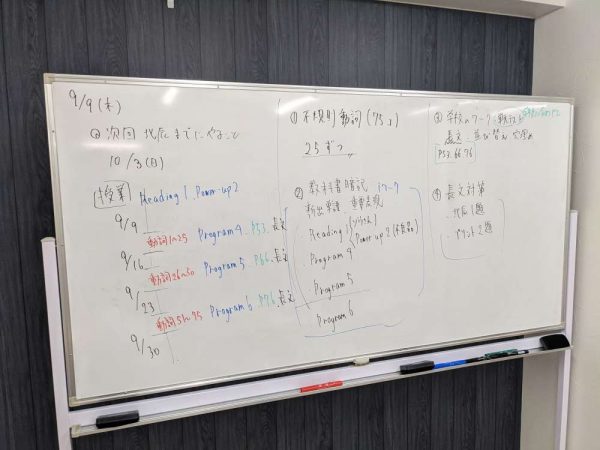 9/9(木)
◎次回 北辰までにやること
10/3(日)
授業 Reading 1. Power-up 2
9/9
動詞1~25 Program 4. P53. 長文
9/16
動詞26~50 Program 5 P66. 長文
9/23
動詞51~75 Program 6 P76. 長文
9/30
① 不規則動詞(75コ)
25ずつ
② 教科書暗記 ワーク
新出単語 重要表現
Reading 1
Power up 2
Program 4
Program 5
Program 6
③ 学校のワーク
長文 並び替え 穴埋め
P53. 66. 76
④ 長文対策
北辰1題
プリント2題